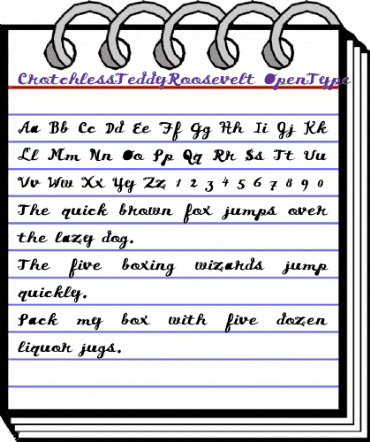 CrotchlessTeddyRoosevelt OpenType
Aa Bb Cc Dd Ee Ff Gg Hh Ii Jj Kk
Ll Mm Nn Oo Pp Qq Rr Ss Tt Uu
Vv Ww Xx Yy Zz 1 2 3 4 5 6 7 8 9 0
The quick brown fox jumps over
the lazy dog.
The five boxing wizards jump
quickly.
Pack my box with five dozen
liquor jugs.